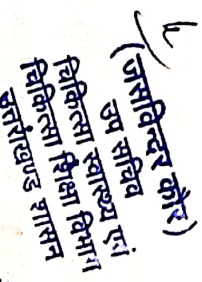 (जसविन्दर कौर)
उप सचिव
चिकित्सा स्वास्थ्य एवं
चिकित्सा शिक्षा विभाग
उत्तराखण्ड शासन